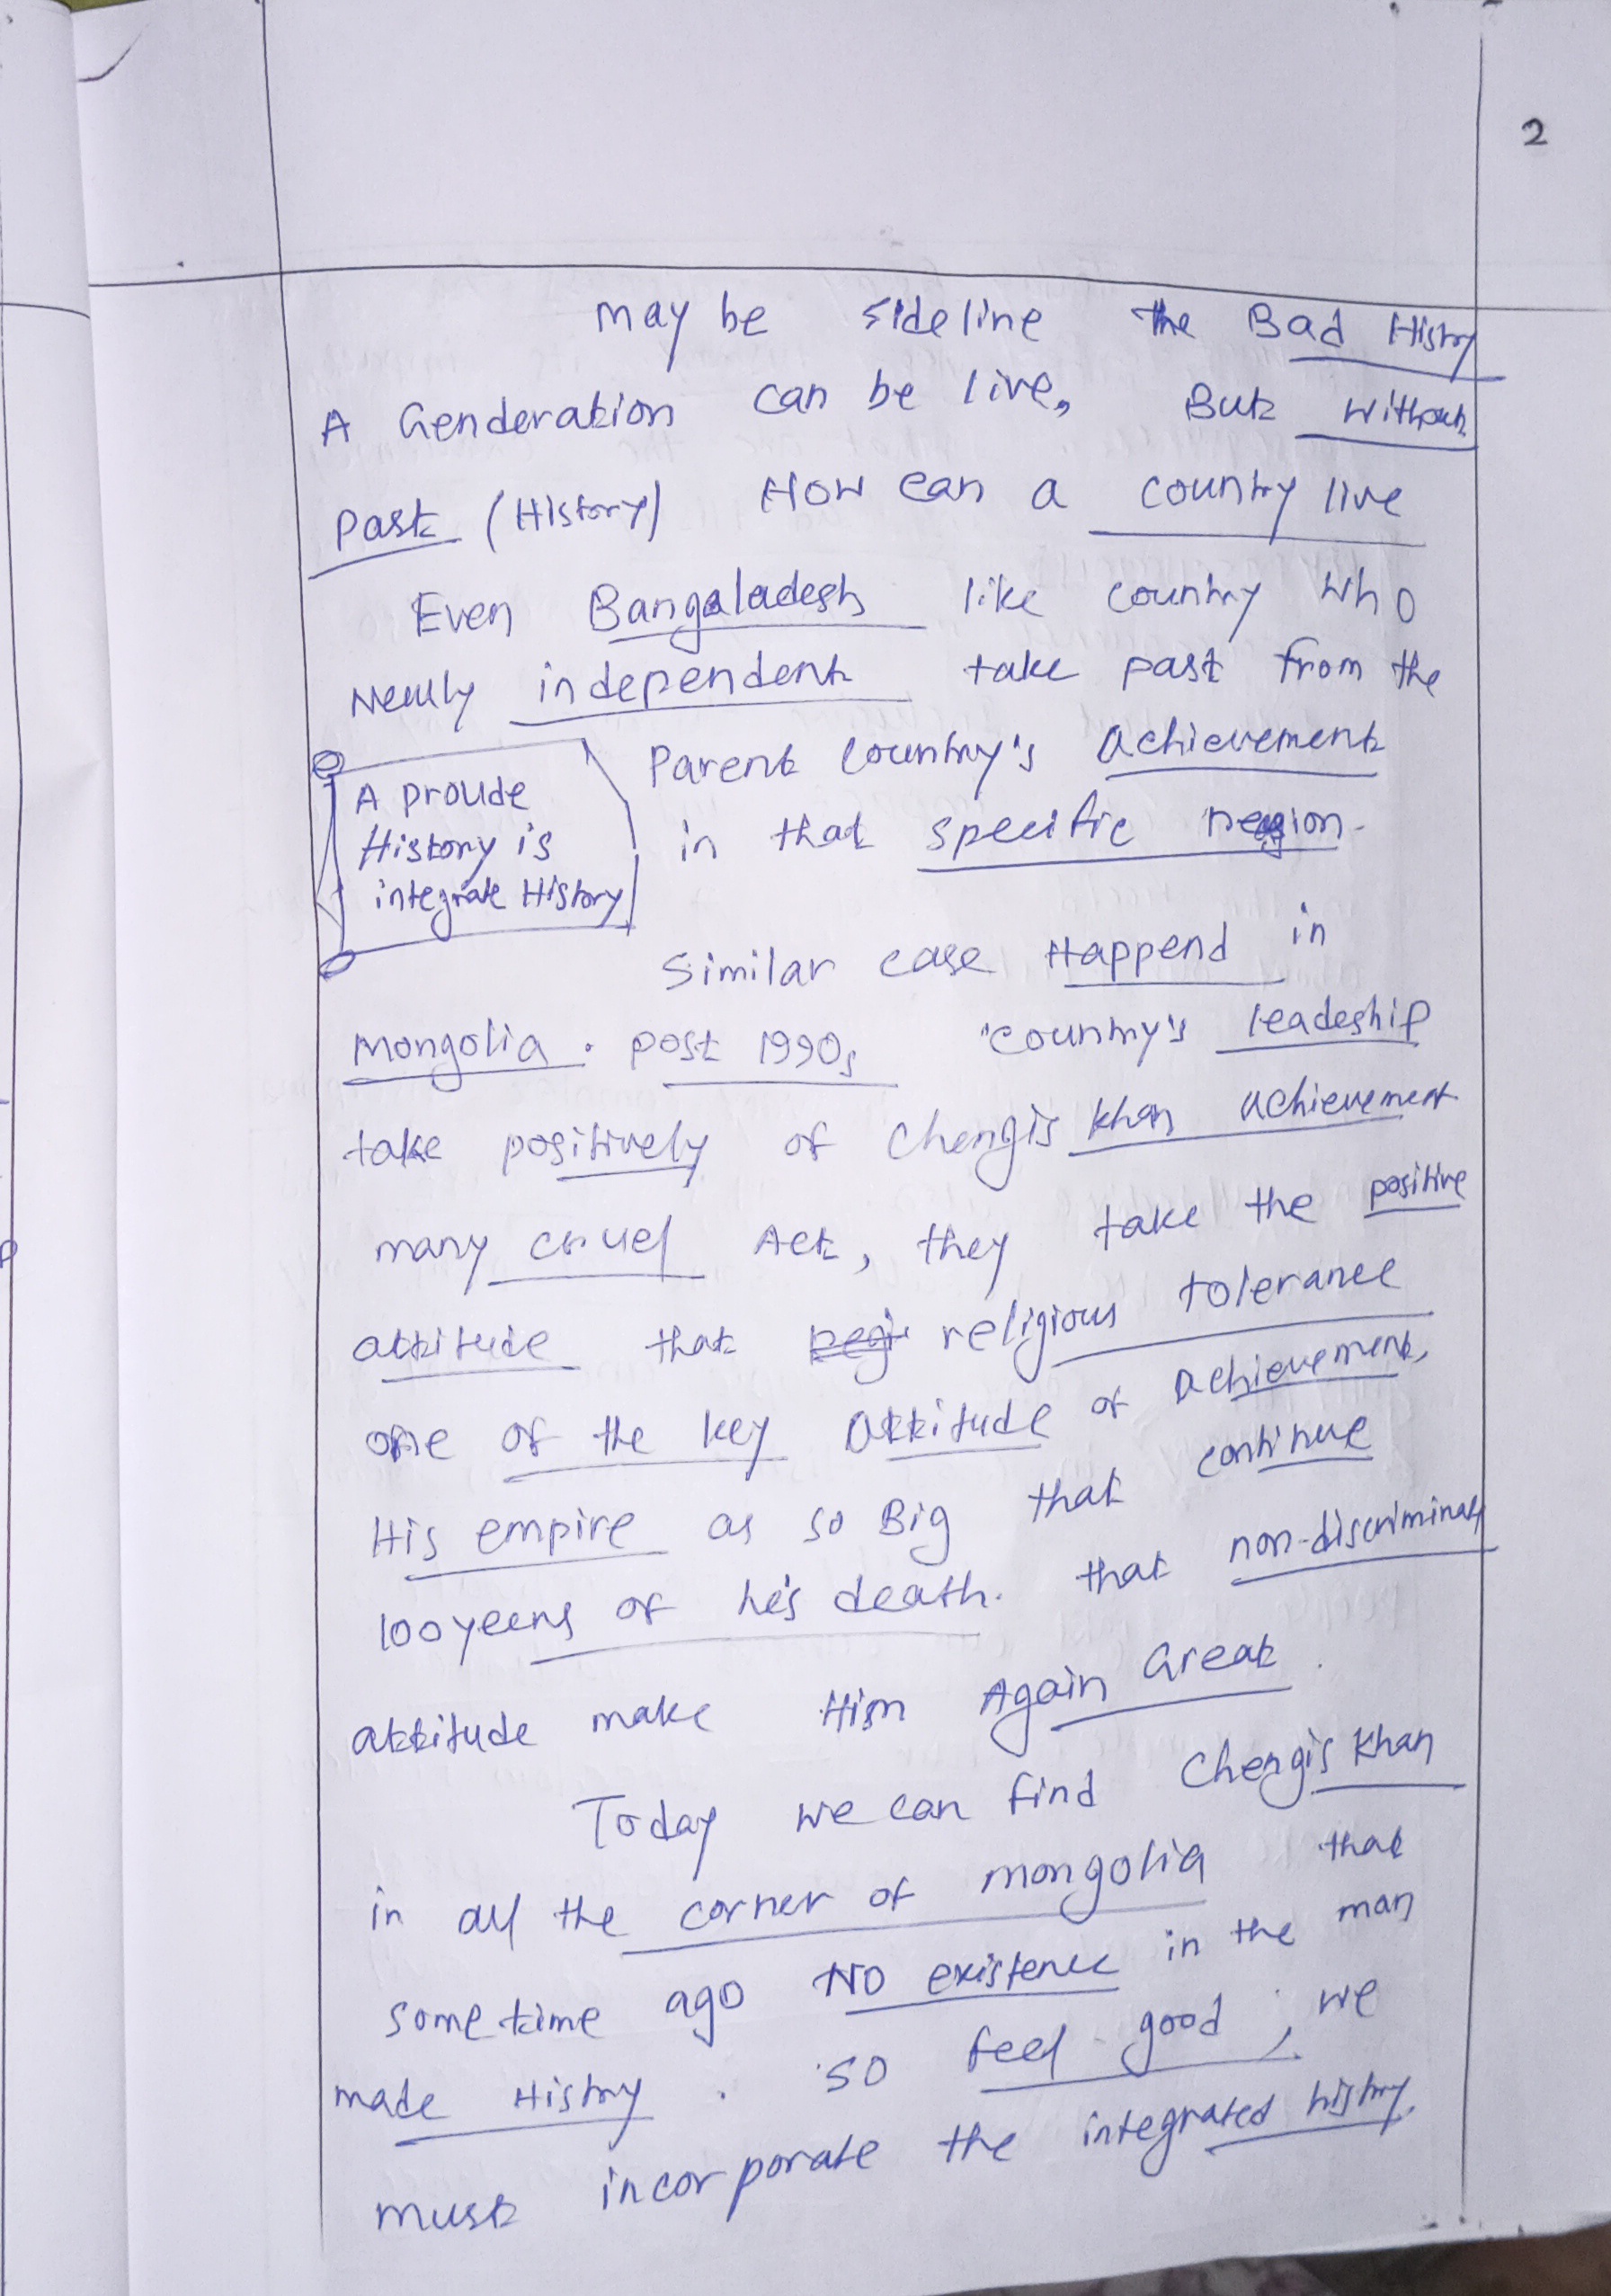 2
may be sideline the Bad Histry
A Genderation can be live, But without
past (History) How can a country live
Even Bangaladesh like country who
Newly independent take past from the
Parent Country's achievement
in that specific region.
A proude
History is
integrate History
Similar case Happend in
Mongolia. post 1990s country's leadeship
take positively of Chengis khan achievement
many cruel Act, they take the positive
attitude that religious tolerance
one of the key attitude of achievement,
His empire as so Big that continue
100 yeers of he's death. that non-discriminaty
attitude make Him Again Great.
Today we can find Chengis Khan
in all the corner of mongolia that
some time ago No existence in the man
made Histry. so feel good, we
must incorporate the integrated histry.